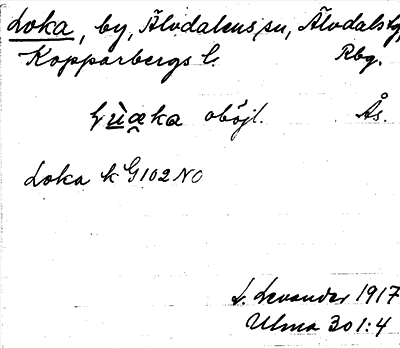 Loka, by, Älvdalens sn, Älvdals tg,
Kopparbergs l. Rbg.
oböjl. Ås.
Loka k G102 NO
L. Levander 1917
Ulma 301:4